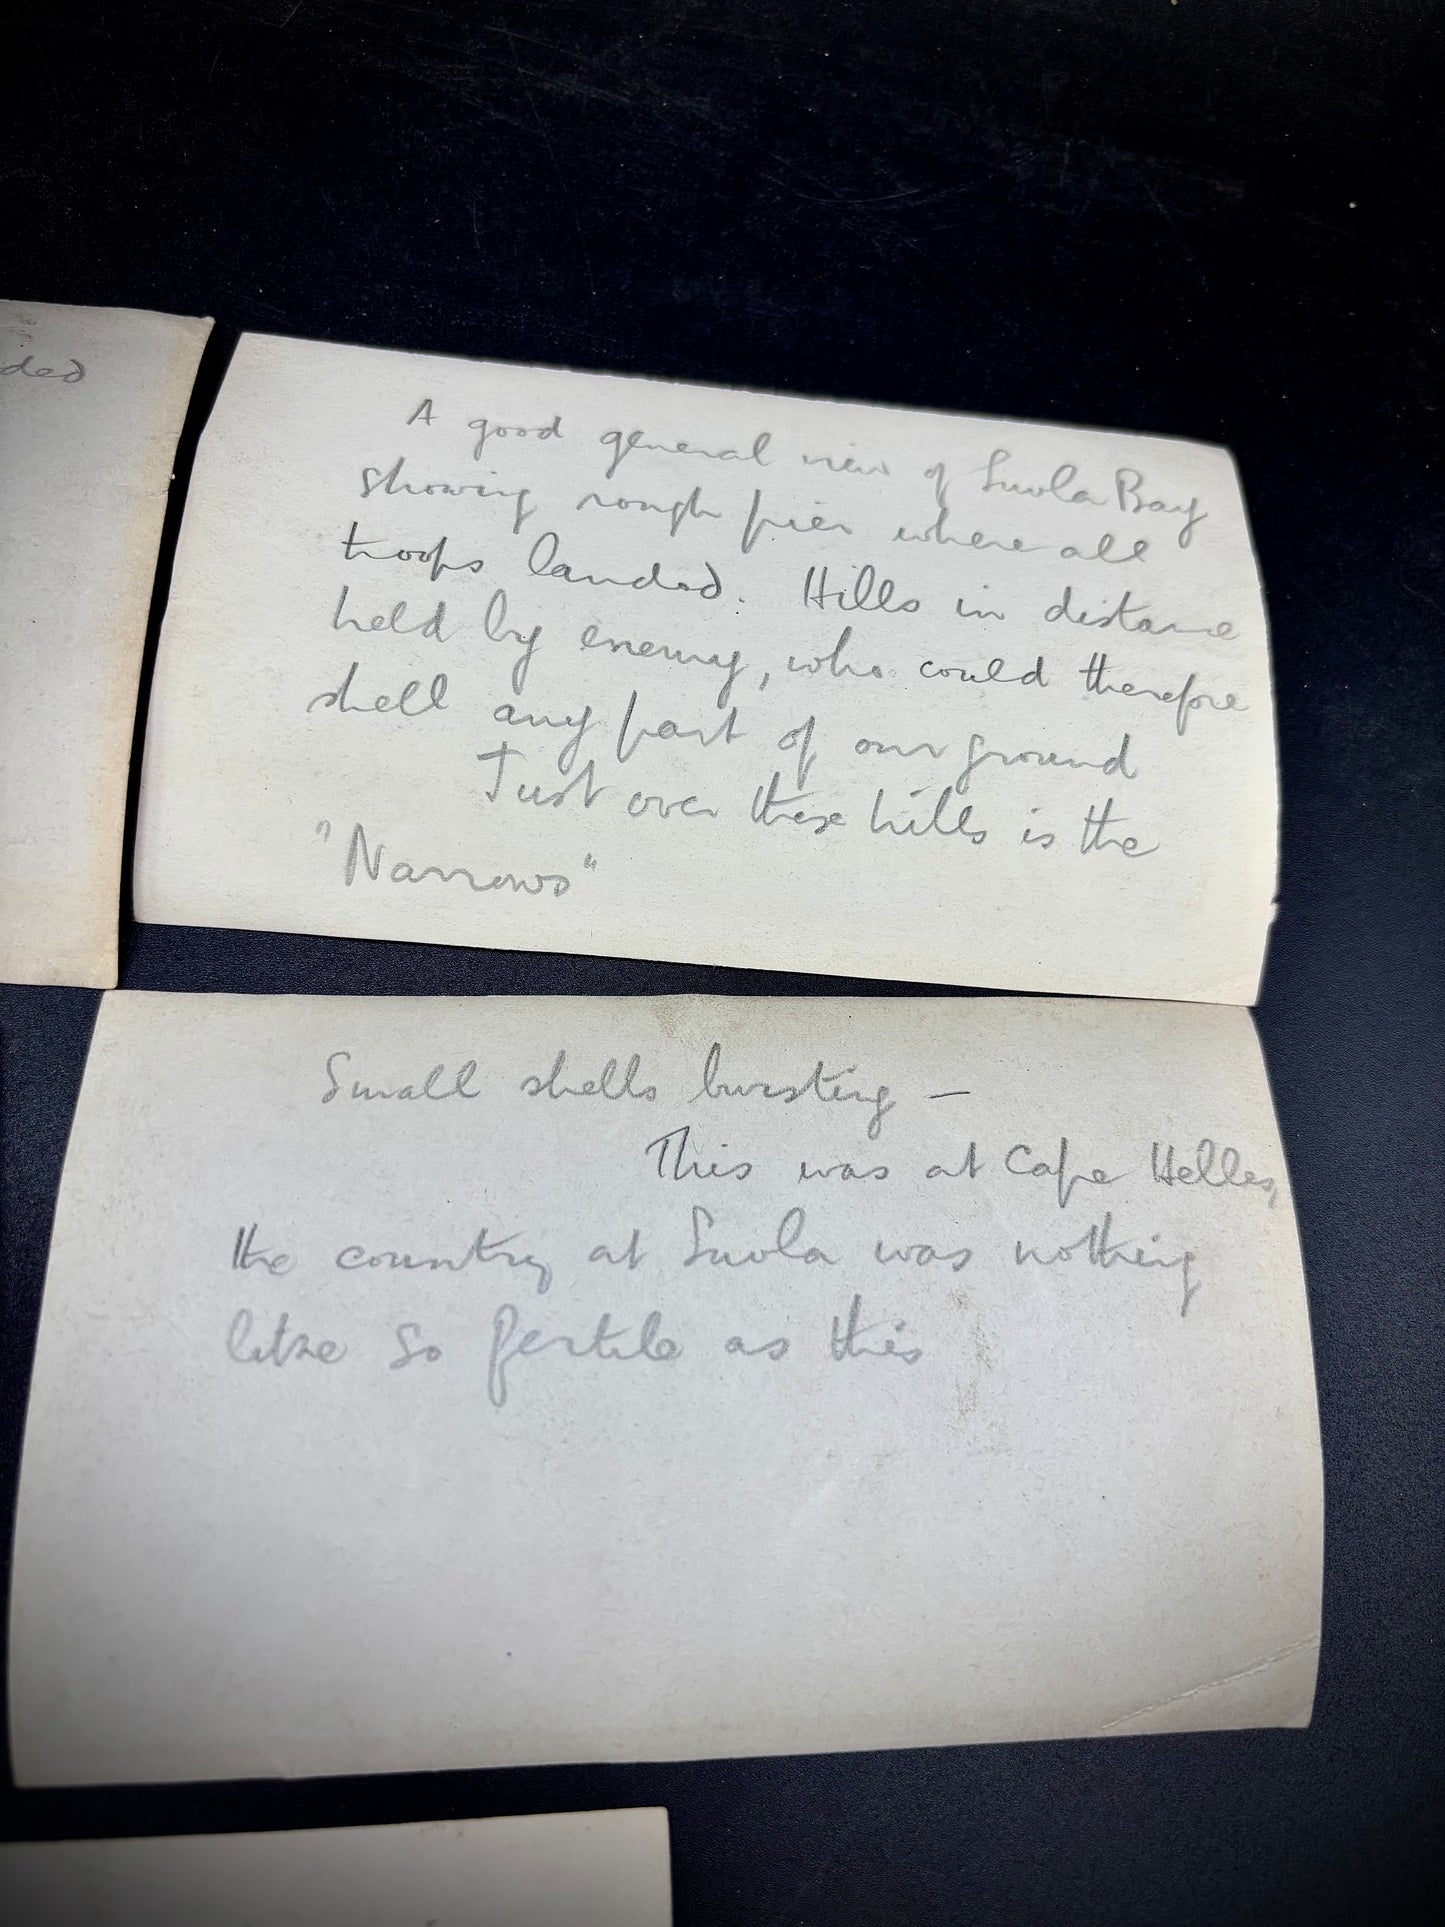 ded
A good general view of Suvla Bay
showing rough pier where all
troops landed. Hills in distance
held by enemy, who could therefore
shell any part of our ground
Just over these hills is the
"Narrows"
Small shells bursting —
This was at Cape Helles,
the country at Suvla was nothing
like so fertile as this